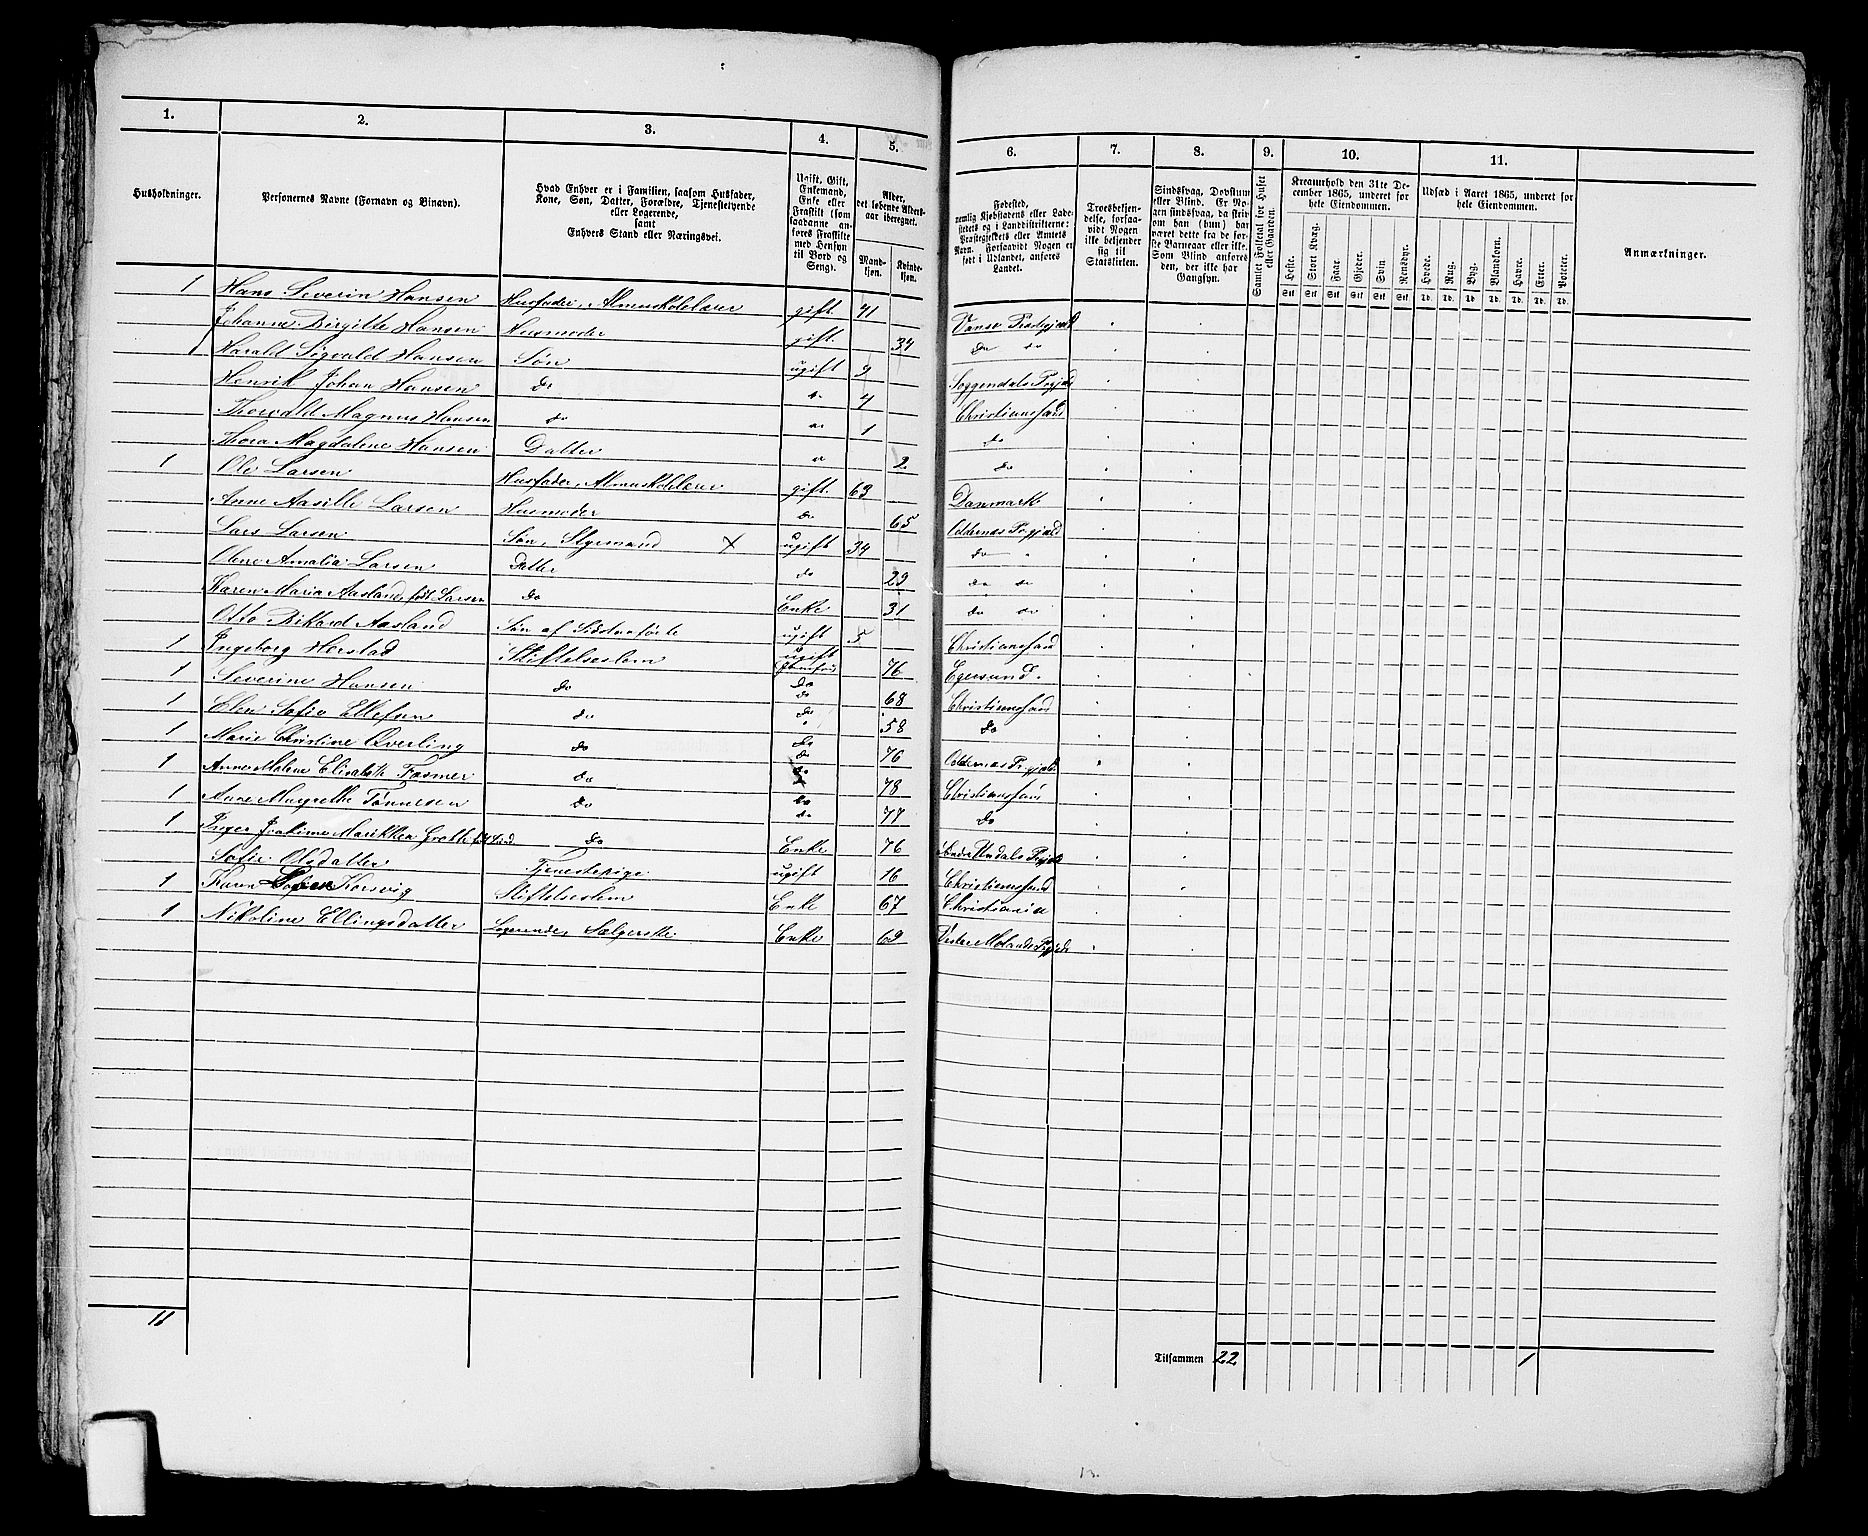 1. 2. 3. 4. 5. 6. 7. 8. 9. 10. 11.
Husholdninger.
Personernes Navne (Fornavn og Binavn).
Hvad Enhver er i Familien, saasom Husfader,
Kone, Søn, Datter, Forældre, Tjenestetyende
eller Logerende,
samt
Enhvers Stand eller Næringsvei.
Ugift, Gift,
Enkemand,
Enke eller
Fraskilt (som
saadanne an-
føres Fraskilte
med Hensyn
til Bord og
Seng).
Alder,
det løbende Alders-
aar iberegnet.
Mand-
kjøn.
Kvinde-
kjøn.
Fødested,
nemlig Kjøbstadens eller Lade-
stedets og i Landdistrikterne:
Præstegjeldets eller Amtets
Navn. Forsaavidt Nogen er
født i Udlandet, anføres
Landet.
Troesbekjen-
delse, forsaa-
vidt Nogen
ikke bekjender
sig til
Statskirken.
Sindssvag, Døvstum
eller Blind. Er No-
gen sindssvag, da skriv
om han (hun) har
været dette fra de før-
ste Barneaar eller ikke.
Som Blind anføres
den, der ikke har
Gangsyn.
Samlet Folketal for Huset
eller Gaarden.
Kreaturhold den 31te De-
cember 1865, underet for
hele Eiendommen.
Heste. Stort Kvæg. Faar. Gjeder. Svin. Rensdyr.
Stk Stk Stk Stk Stk Stk
Udsæd i Aaret 1865, underet for
hele Eiendommen.
Hvede. Rug. Byg. Blandkorn. Havre. Erter. Poteter.
Td. Td. Td. Td. Td. Td. Td.
Anmærkninger.
1 Hans Severin Hansen Husfader, Almuskolelærer gift 41 Vanse Prstgjæld
Johanne Birgitte Hansen Husmoder gift 34 do do
Harald Sigvald Hansen Søn ugift 9 Soggendals Prgjæld
Henrik Johan Hansen do 4 Christianssand
Thorvald Magnus Hansen do 1 do
Thora Magdalene Hansen Datter 2 do
1 Ole Larsen Husfader, Almuskolelærer gift 63 Danmark
Anne Aasille Larsen Husmoder do 65 Oddernæs Prgjæld
Lars Larsen Søn, Styrmand X ugift 34 do
Oline Amalia Larsen Datter do 29 do do
Karen Maria Aasland, født Larsen do Enke 31 do do
Otto Rikard Aasland Søn af Sidstnæførte ugift 5 Christianssand
1 Ingeborg Herstad Stiftelseslem ugift 76 Egersund
1 Severine Hansen do do do 68 Christianssand
1 Elen Sofie Ellefsen do do do 58 do
1 Marie Christine Qverling do do do 76 Oddernæs Prgjæld
1 Anne Malene Elisabeth Fasmer do do 78 Christianssand
1 Anne Margrethe Tønnesen do do do 77 do
1 Inger Joakime Marikken Grotte født Lund do Enke 76 Søndre Undals Prgjæld
Sofie Olsdatter Tjenestepige ugift 16 Christianssand
1 Karen Korsvig Stiftelseslem Enke 67 Christiania
1 Nikoline Ellingsdatter Logerende, Sælgerske Enke 69 Vestre Molands Prgjæld
11
Tilsammen 22 1
13.